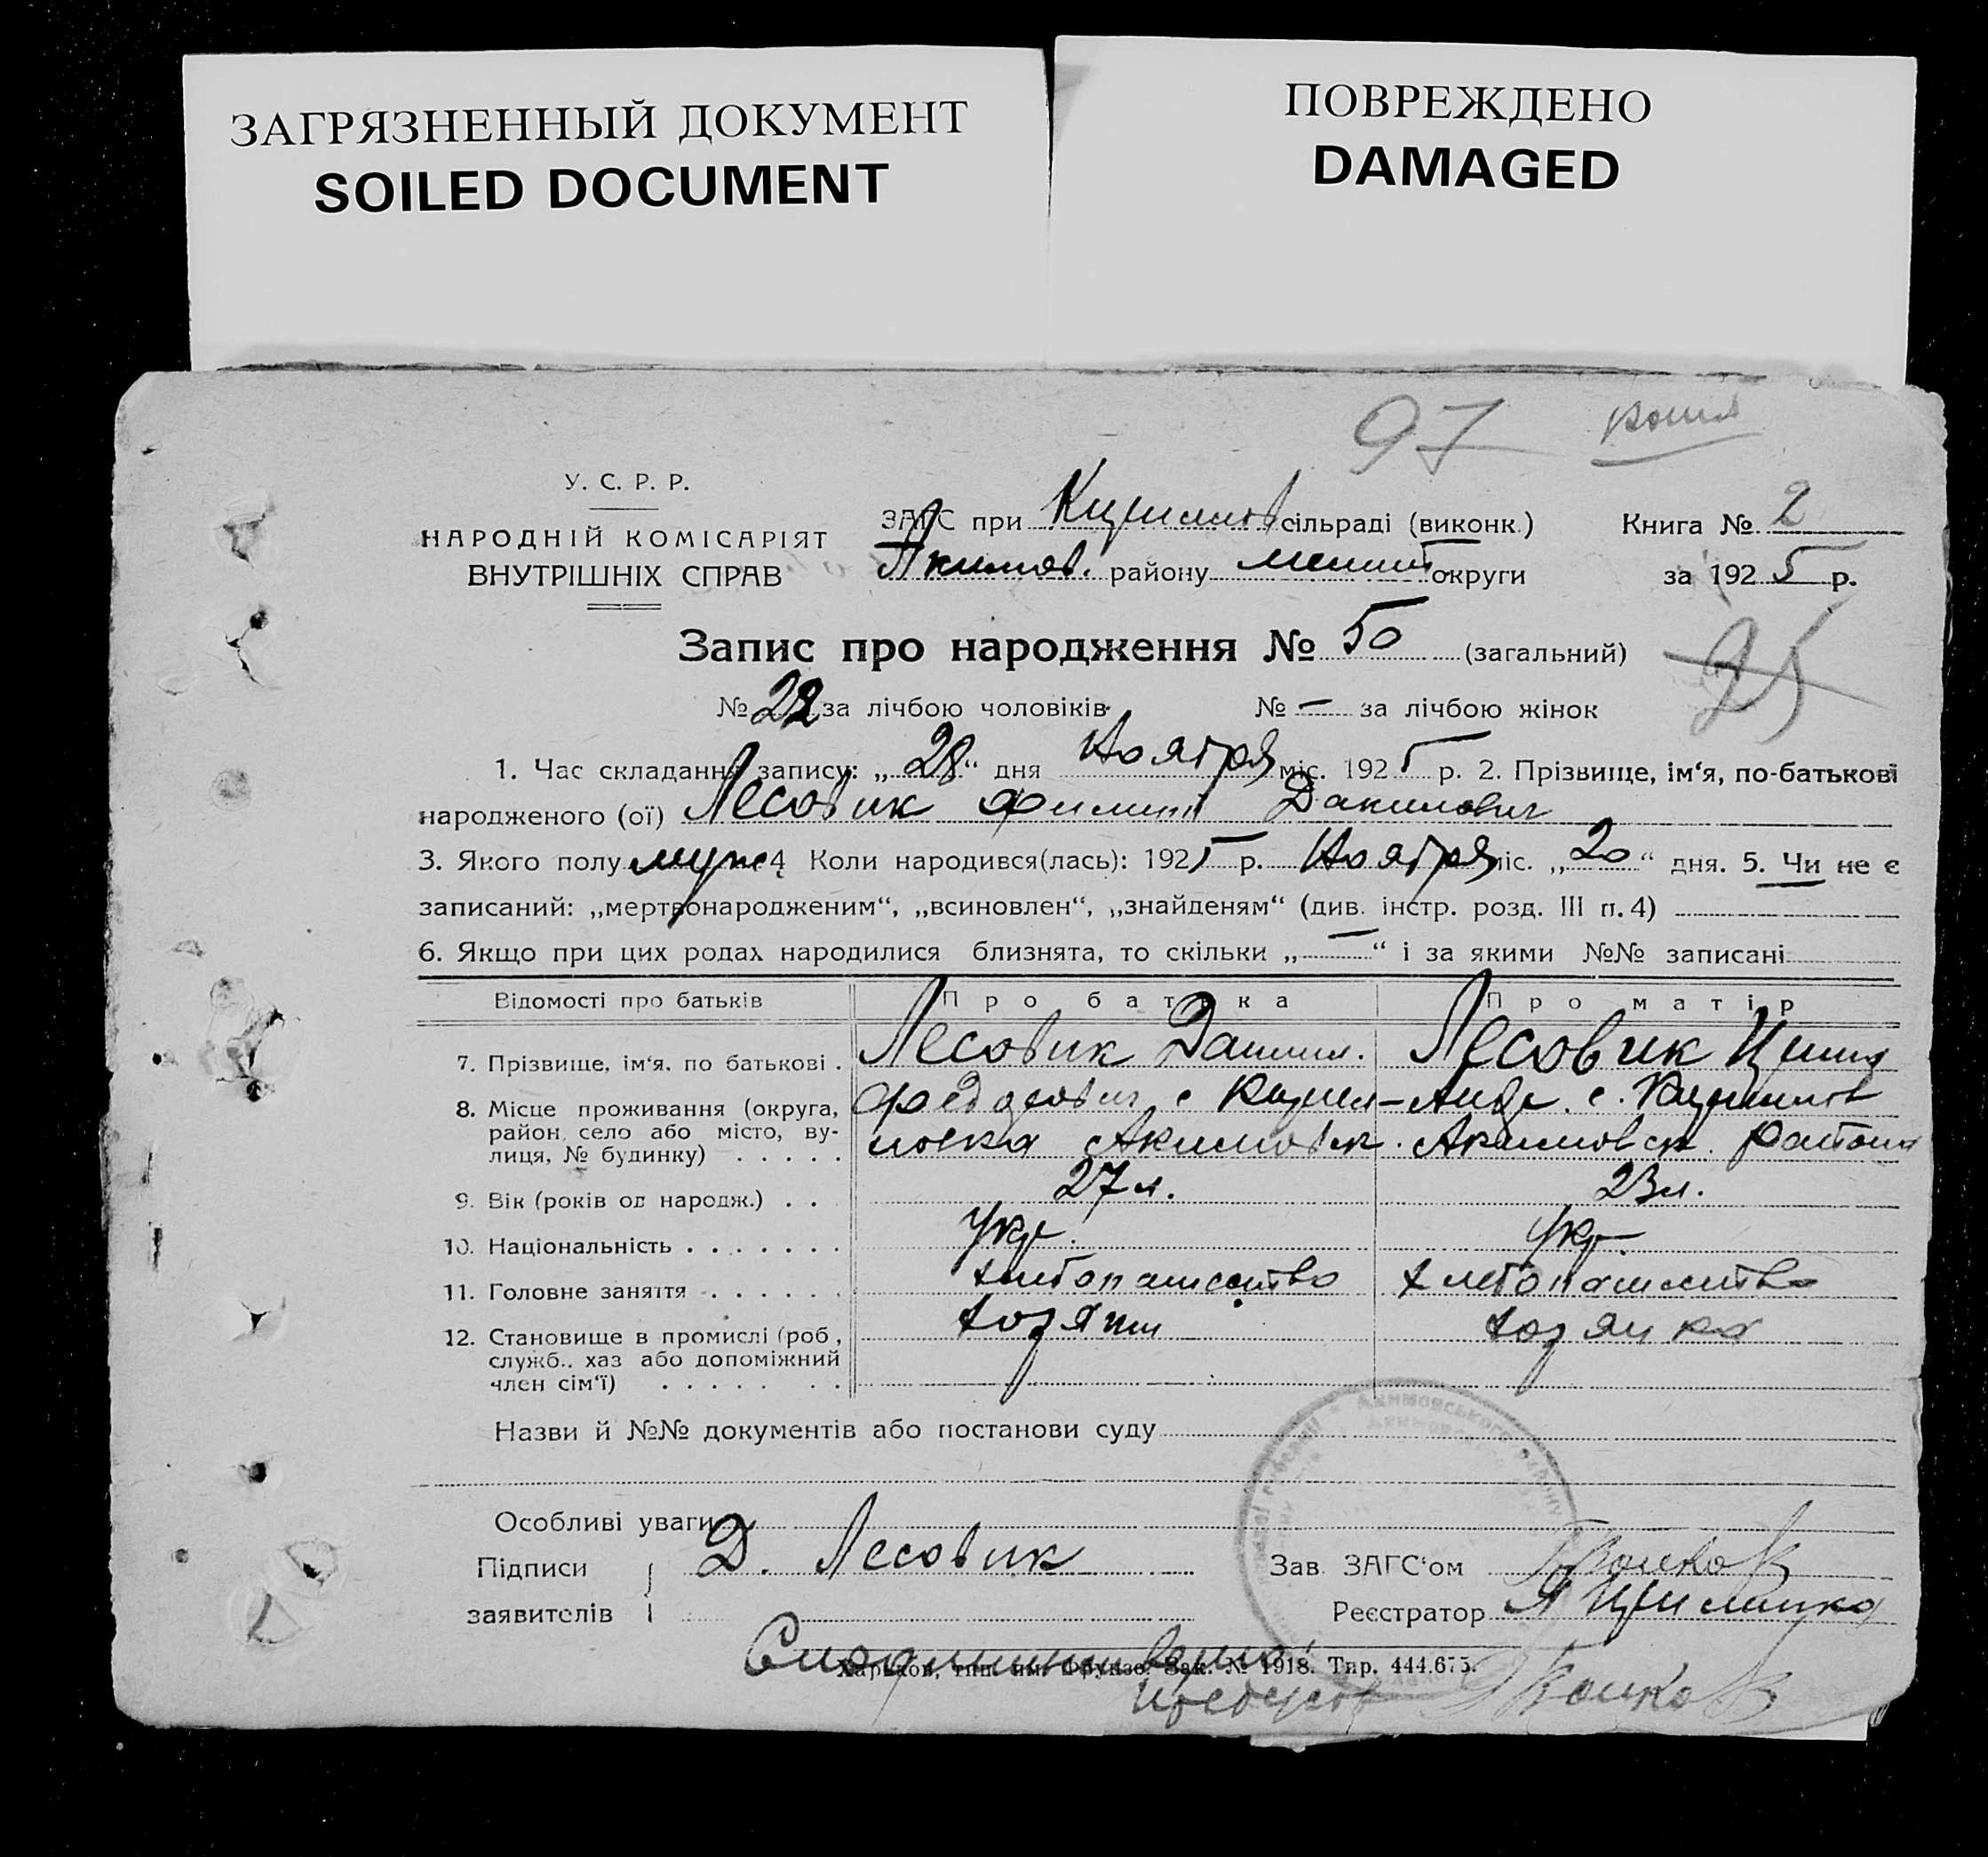 ЗАГРЯЗНЕННЫЙ ДОКУМЕНТ
SOILED DOCUMENT
ПОВРЕЖДЕНО
DAMAGED
97 копия
У. С. Р. Р.
НАРОДНІЙ КОМІСАРІЯТ
ВНУТРІШНІХ СПРАВ
ЗАГС при сільраді (виконк.)
Акимов. району округи
Книга № 2
за 1925 р.
Запис про народження № 50 (загальний)
95
№ за лічбою чоловіків № — за лічбою жінок
1. Час складання запису: „28“ дня Ноября міс. 1925 р. 2. Прізвище, ім‘я, по-батькові
народженого (ої) Лесовик Филипп Данилович
3. Якого полу муж 4 Коли народився(лась): 1925 р. Ноября міс. „20“ дня. 5. Чи не є
записаний: „мертвонародженим“, „всиновлен“, „знайденям“ (див. інстр. розд. III п. 4)
6. Якщо при цих родах народилися близнята, то скільки „—“ і за якими №№ записані
Відомості про батьків Про батька Про матір
7. Прізвище, ім‘я, по батькові . Лесовик Данил. Лесовик
8. Місце проживання (округа,
район, село або місто, ву-
лиця, № будинку) . . . . . Акимовск. Акимовск. района
9. Вік (років од народж.) . . 27 л. 23 л.
10. Національність . . . . . . . Укр. Укр.
11. Головне заняття . . . . . . хлебопашество хлебопашество
12. Становище в промислі (роб, хозяин хозяйка
служб., хаз або допоміжний
член сім‘ї) . . . . . . .
Назви й №№ документів або постанови суду
Особливі уваги
Підписи Д. Лесовик
заявителів
Зав. ЗАГС‘ом
Реєстратор
Харьков, тип. им. Фрунзе. Зак. № 1918. Тир. 444.675.